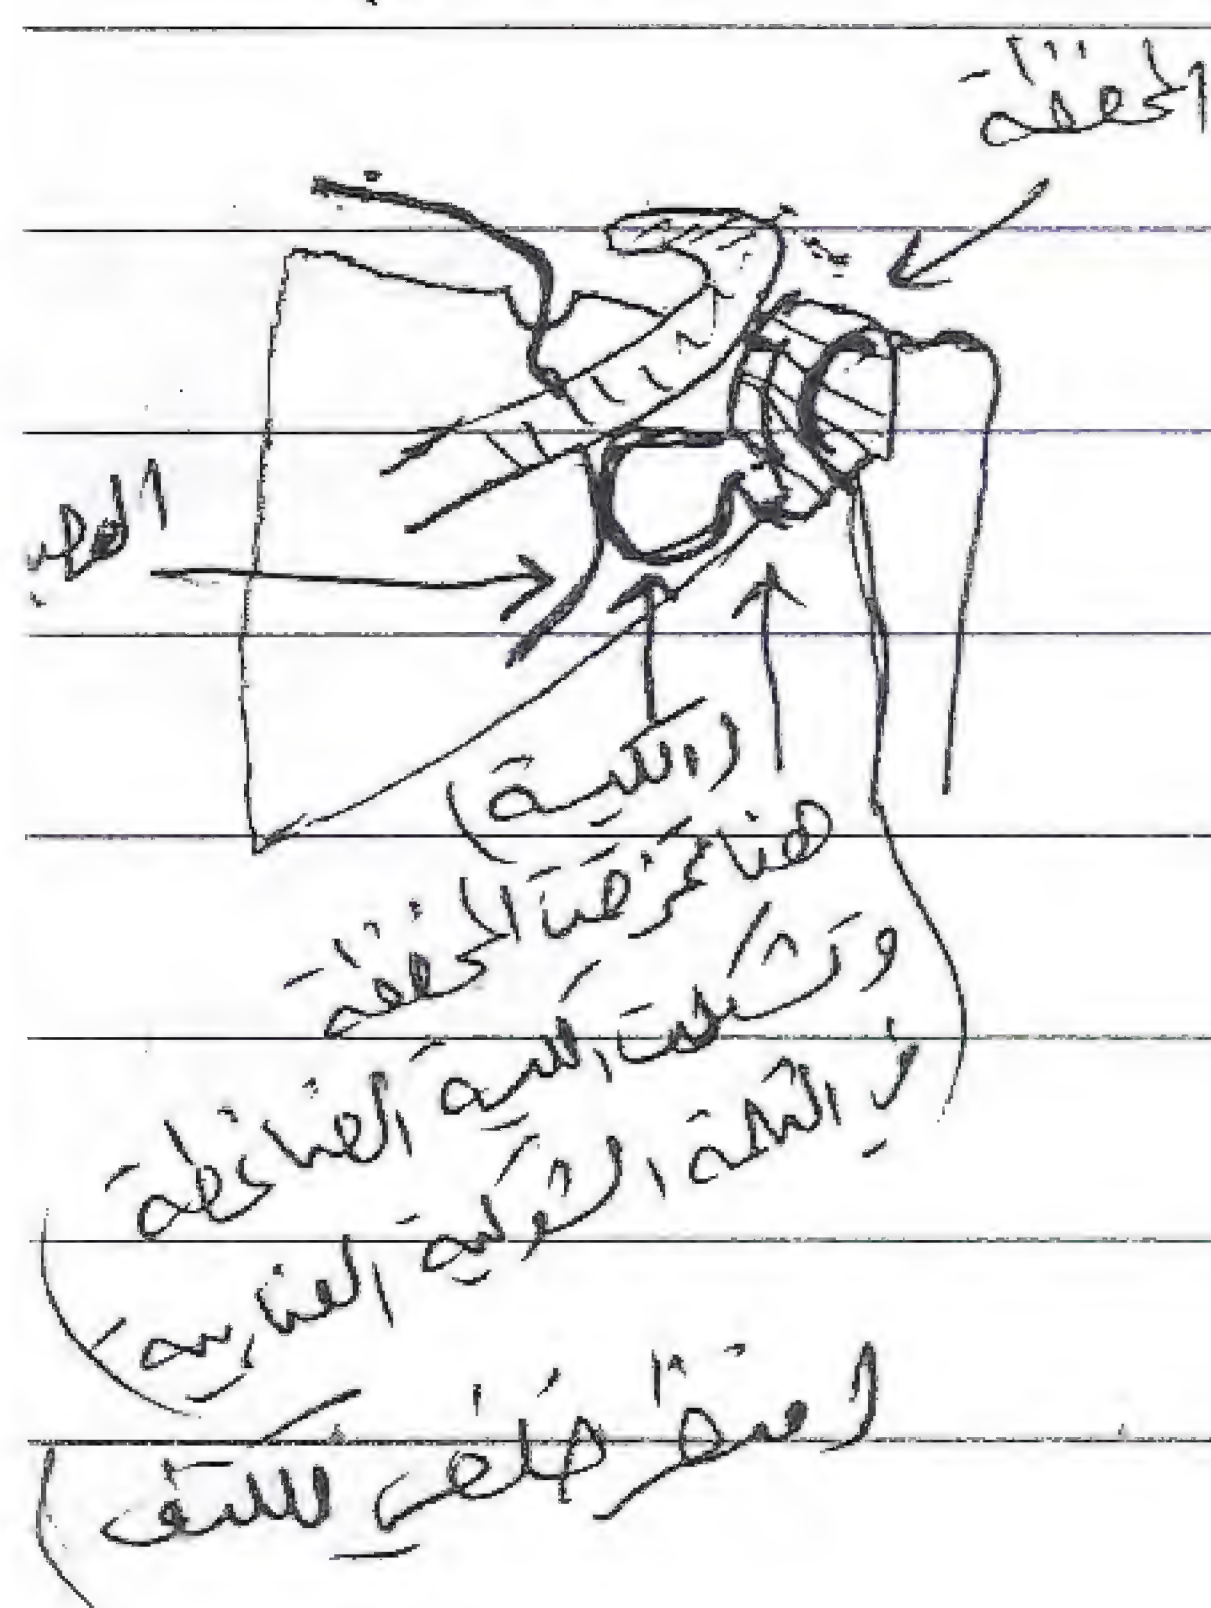 المحفظة
العصب
(الكيسة)
هنا تمزقت المحفظة
وتشكلت الكيسة الضاغطة
في الثلمة الشوكية العنابية
(منظر خلفي للكتف